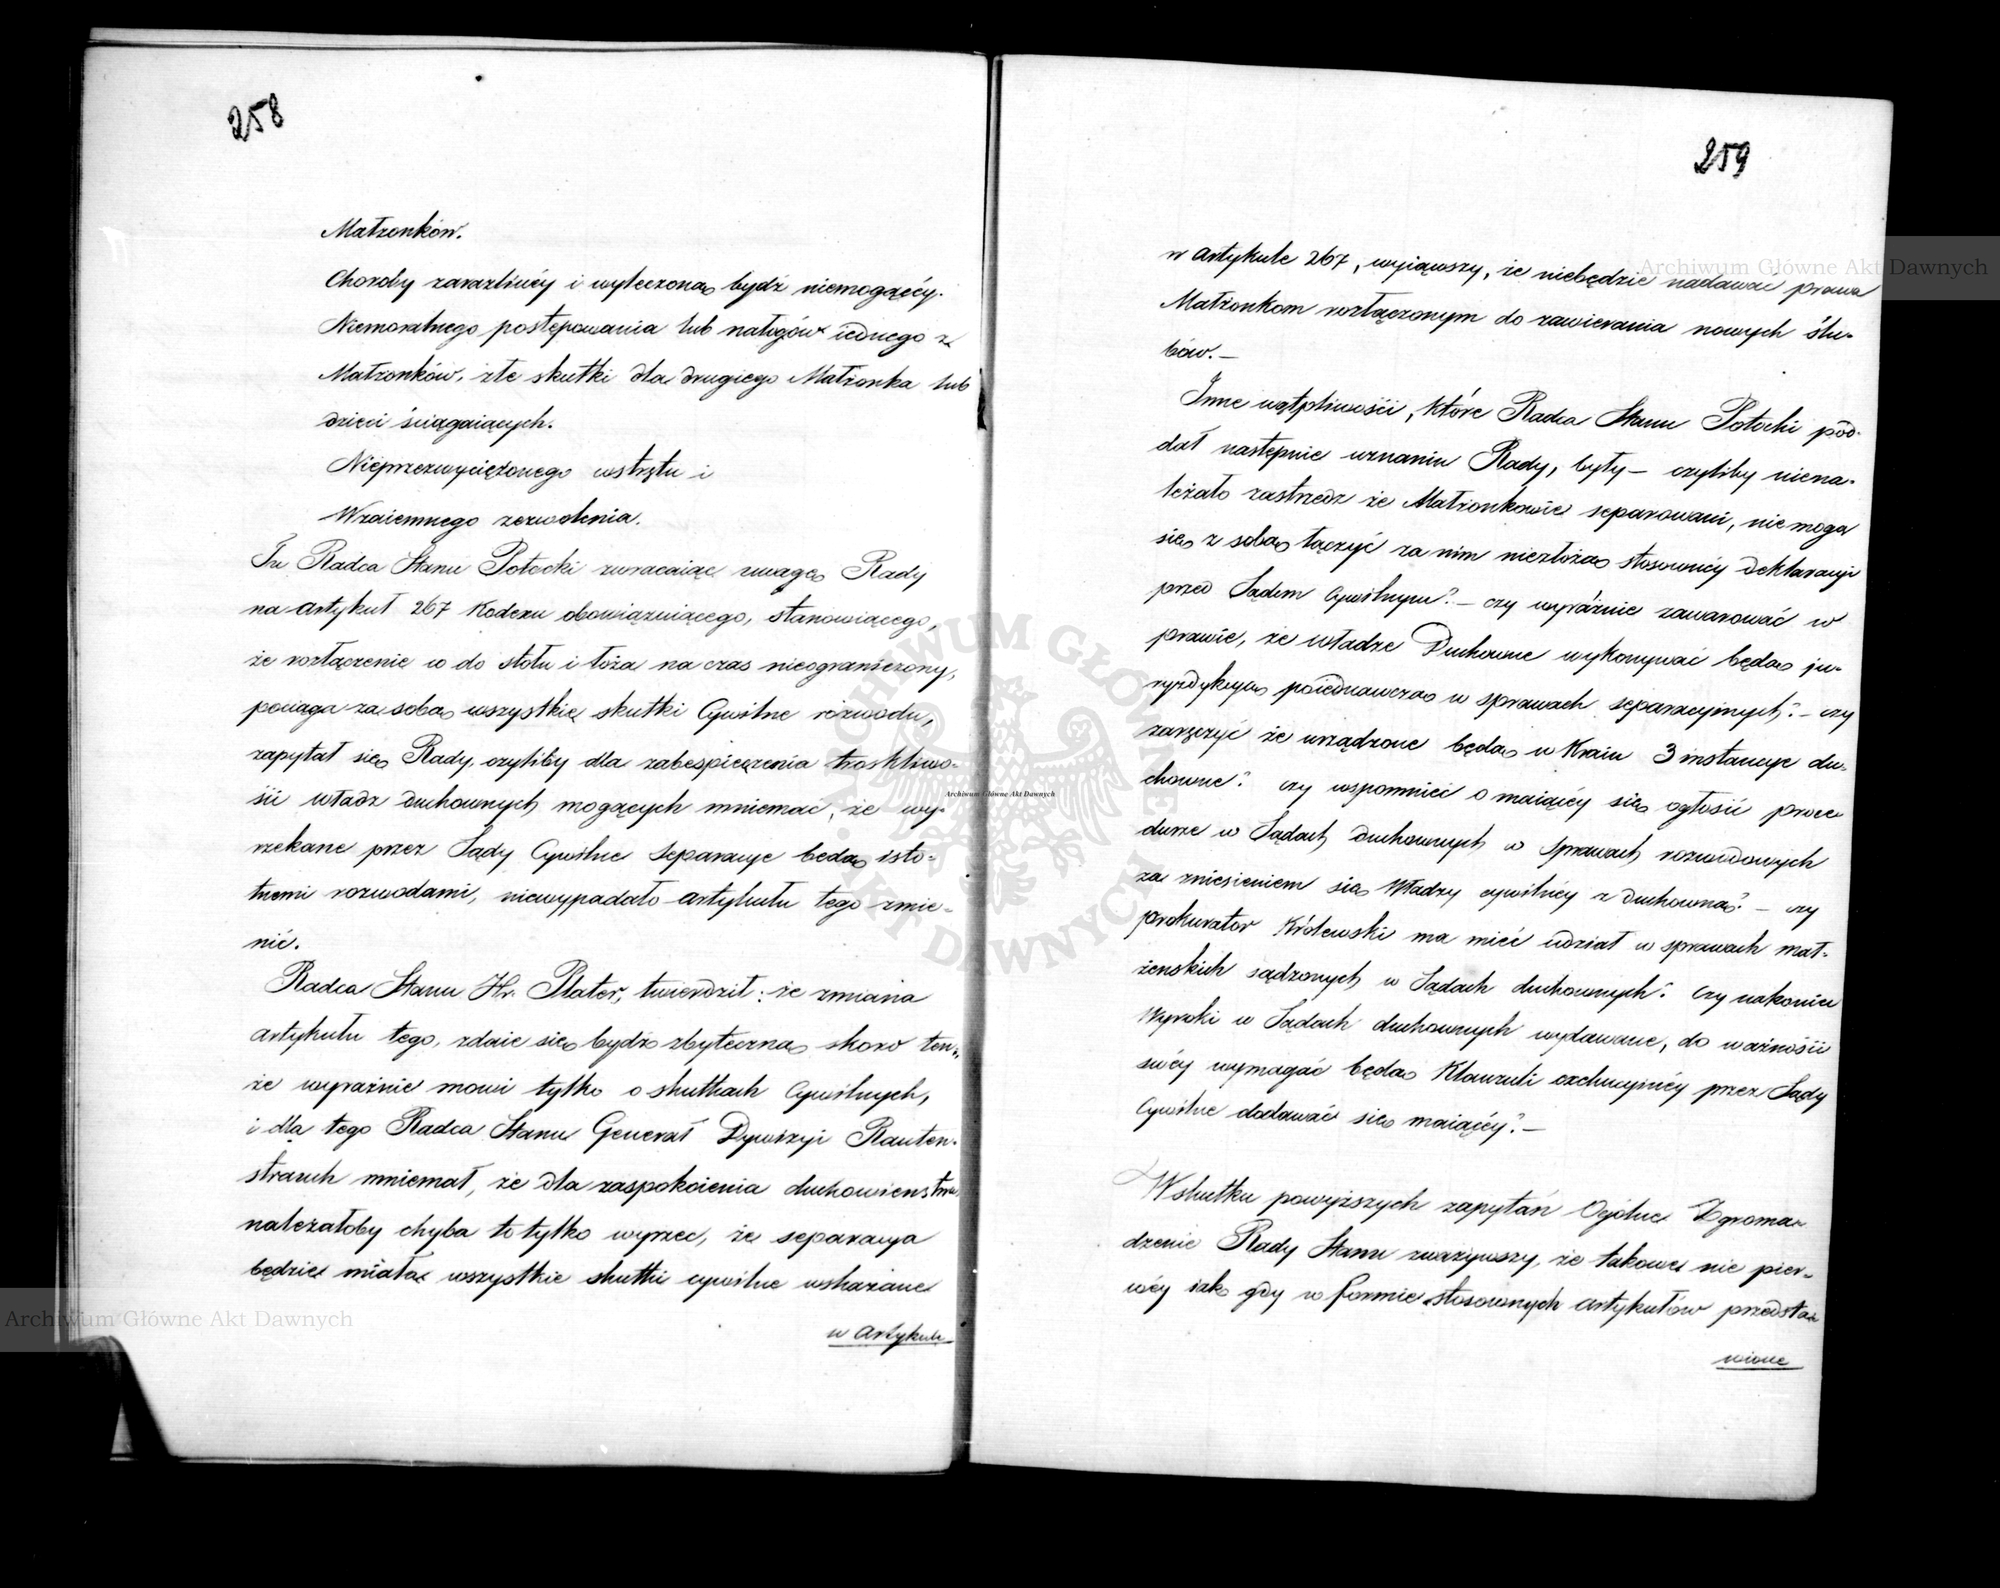 258
Małżonków.
Choroby zaraźliwéy i wyleczoną bydź niemogącéy.
Niemoralnego postępowania lub nałogów iednego z
Małżonków, złe skutki dla drugiego Małżonka lub
dzieci ściągaiących.
Nieprzezwyciężonego wstrętu i
Wzaiemnego zezwolenia.
Tu Radca Stanu Potocki zwracaiąc uwagę Rady
na artykuł 267 Kodexu obowiązuiącego, stanowiącego,
że rozłączenie co do stołu i łoża na czas nieograniczony,
pociąga za sobą wszystkie skutki Cywilne rozwodu,
zapytał się Rady, czyliby dla zabespieczenia troskliwo-
ści władz duchownych mogących mniemać, że wy-
rzekane przez Sądy Cywilne Separacye będą isto-
tnemi rozwodami, niewypadało artykułu tego zmie-
nić.
Radca Stanu Hr. Plater, twierdził: że zmiana
artykułu tego, zdaie się bydź zbyteczną skoro ten-
że wyraźnie mowi tylko o skutkach Cywilnych,
i dla tego Radca Stanu Generał Dywizyi Rauten-
strauch mniemał, że dla zaspokoienia duchowienstwa
należałoby chyba to tylko wyrzec, że separacya
będzie miała wszystkie skutki cywilne wskazane
w Artykule
259
w Artykule 267, wyiąwszy, że niebędzie nadawać prawa
Małżonkom rozłączonym do zawierania nowych ślu-
bów.—
Inne wątpliwości, które Radca Stanu Potocki pod-
dał następnie uznaniu Rady, były— czyliby niena-
leżało zastrzedz że Małżonkowie separowani, nie mogą
się z sobą łączyć za nim niezłożą stosownéy deklaracyi
przed Sądem Cywilnym?— czy wyraźnie zawarować w
prawie, że władze Duchowne wykonywać będą ju-
ryzdykcyą poiednawczą w sprawach separacyinych?— czy
zaręczyć że urządzone będą w Kraiu 3 instancye du-
chowne? czy wspomnieć o maiącéy się ogłosić proce
durze w Sądach duchownych w sprawach rozwodowych
za zniesieniem się Władzy cywilnéy z duchowną?— czy
prokurator Królewski ma mieć udział w sprawach mał-
żenskich sądzonych w Sądach duchownych? Czy nakoniec
Wyroki w Sądach duchownych wydawane, do ważności
swéy wymagać będą Klauzuli exekucyinéy przez Sądy
Cywilne dodawać się maiącéy?—
Wskutku powyższych zapytań Ogólne Zgroma-
dzenie Rady Stanu zważywszy, że takowe nie pier-
wéy iak gdy w formie stosownych artykułów przedsta-
wione
Archiwum Główne Akt Dawnych
Archiwum Główne Akt Dawnych
Archiwum Główne Akt Dawnych
ARCHIWUM GŁÓWNE AKT DAWNYCH